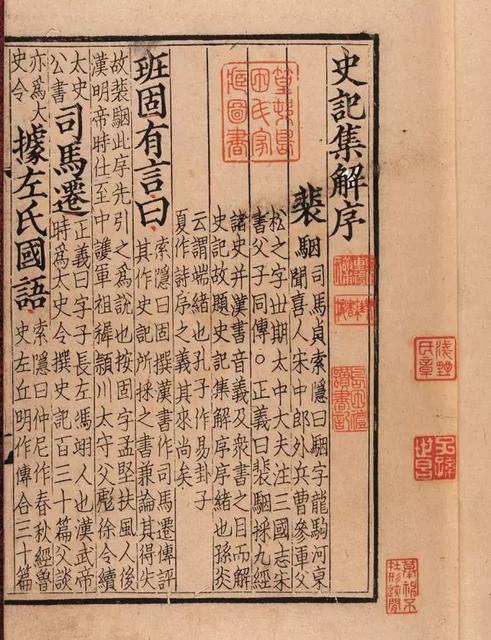 史記集解序
裴駰司馬貞索隱曰駰字龍駒河東
聞喜人宋中郎外兵曹參軍父
松之字丗期太中大夫注三國志宋
書父子同傳○正義曰裴駰採九經
諸史并漢書音義及衆書之目而解
史記故題史記集解序序緒也孫炎
云謂端緒也孔子作易卦子
夏作詩序之義其來尚矣
班固有言曰索隱曰固撰漢書作司馬遷傳評
其作史記所採之書兼論其得失
故裴駰此序先引之爲說也按固字孟堅扶風人後
漢明帝時仕至中護軍祖穉潁川太守父彪徐令續
太史
公書
司馬遷正義曰字子長左馮翊人也漢武帝
時爲太史令撰史記百三十篇父談
亦爲大
史令
據左氏國語索隱曰仲尼作春秋經魯
史左丘明作傳合三十篇
篁邨島
田氏家
藏圖書